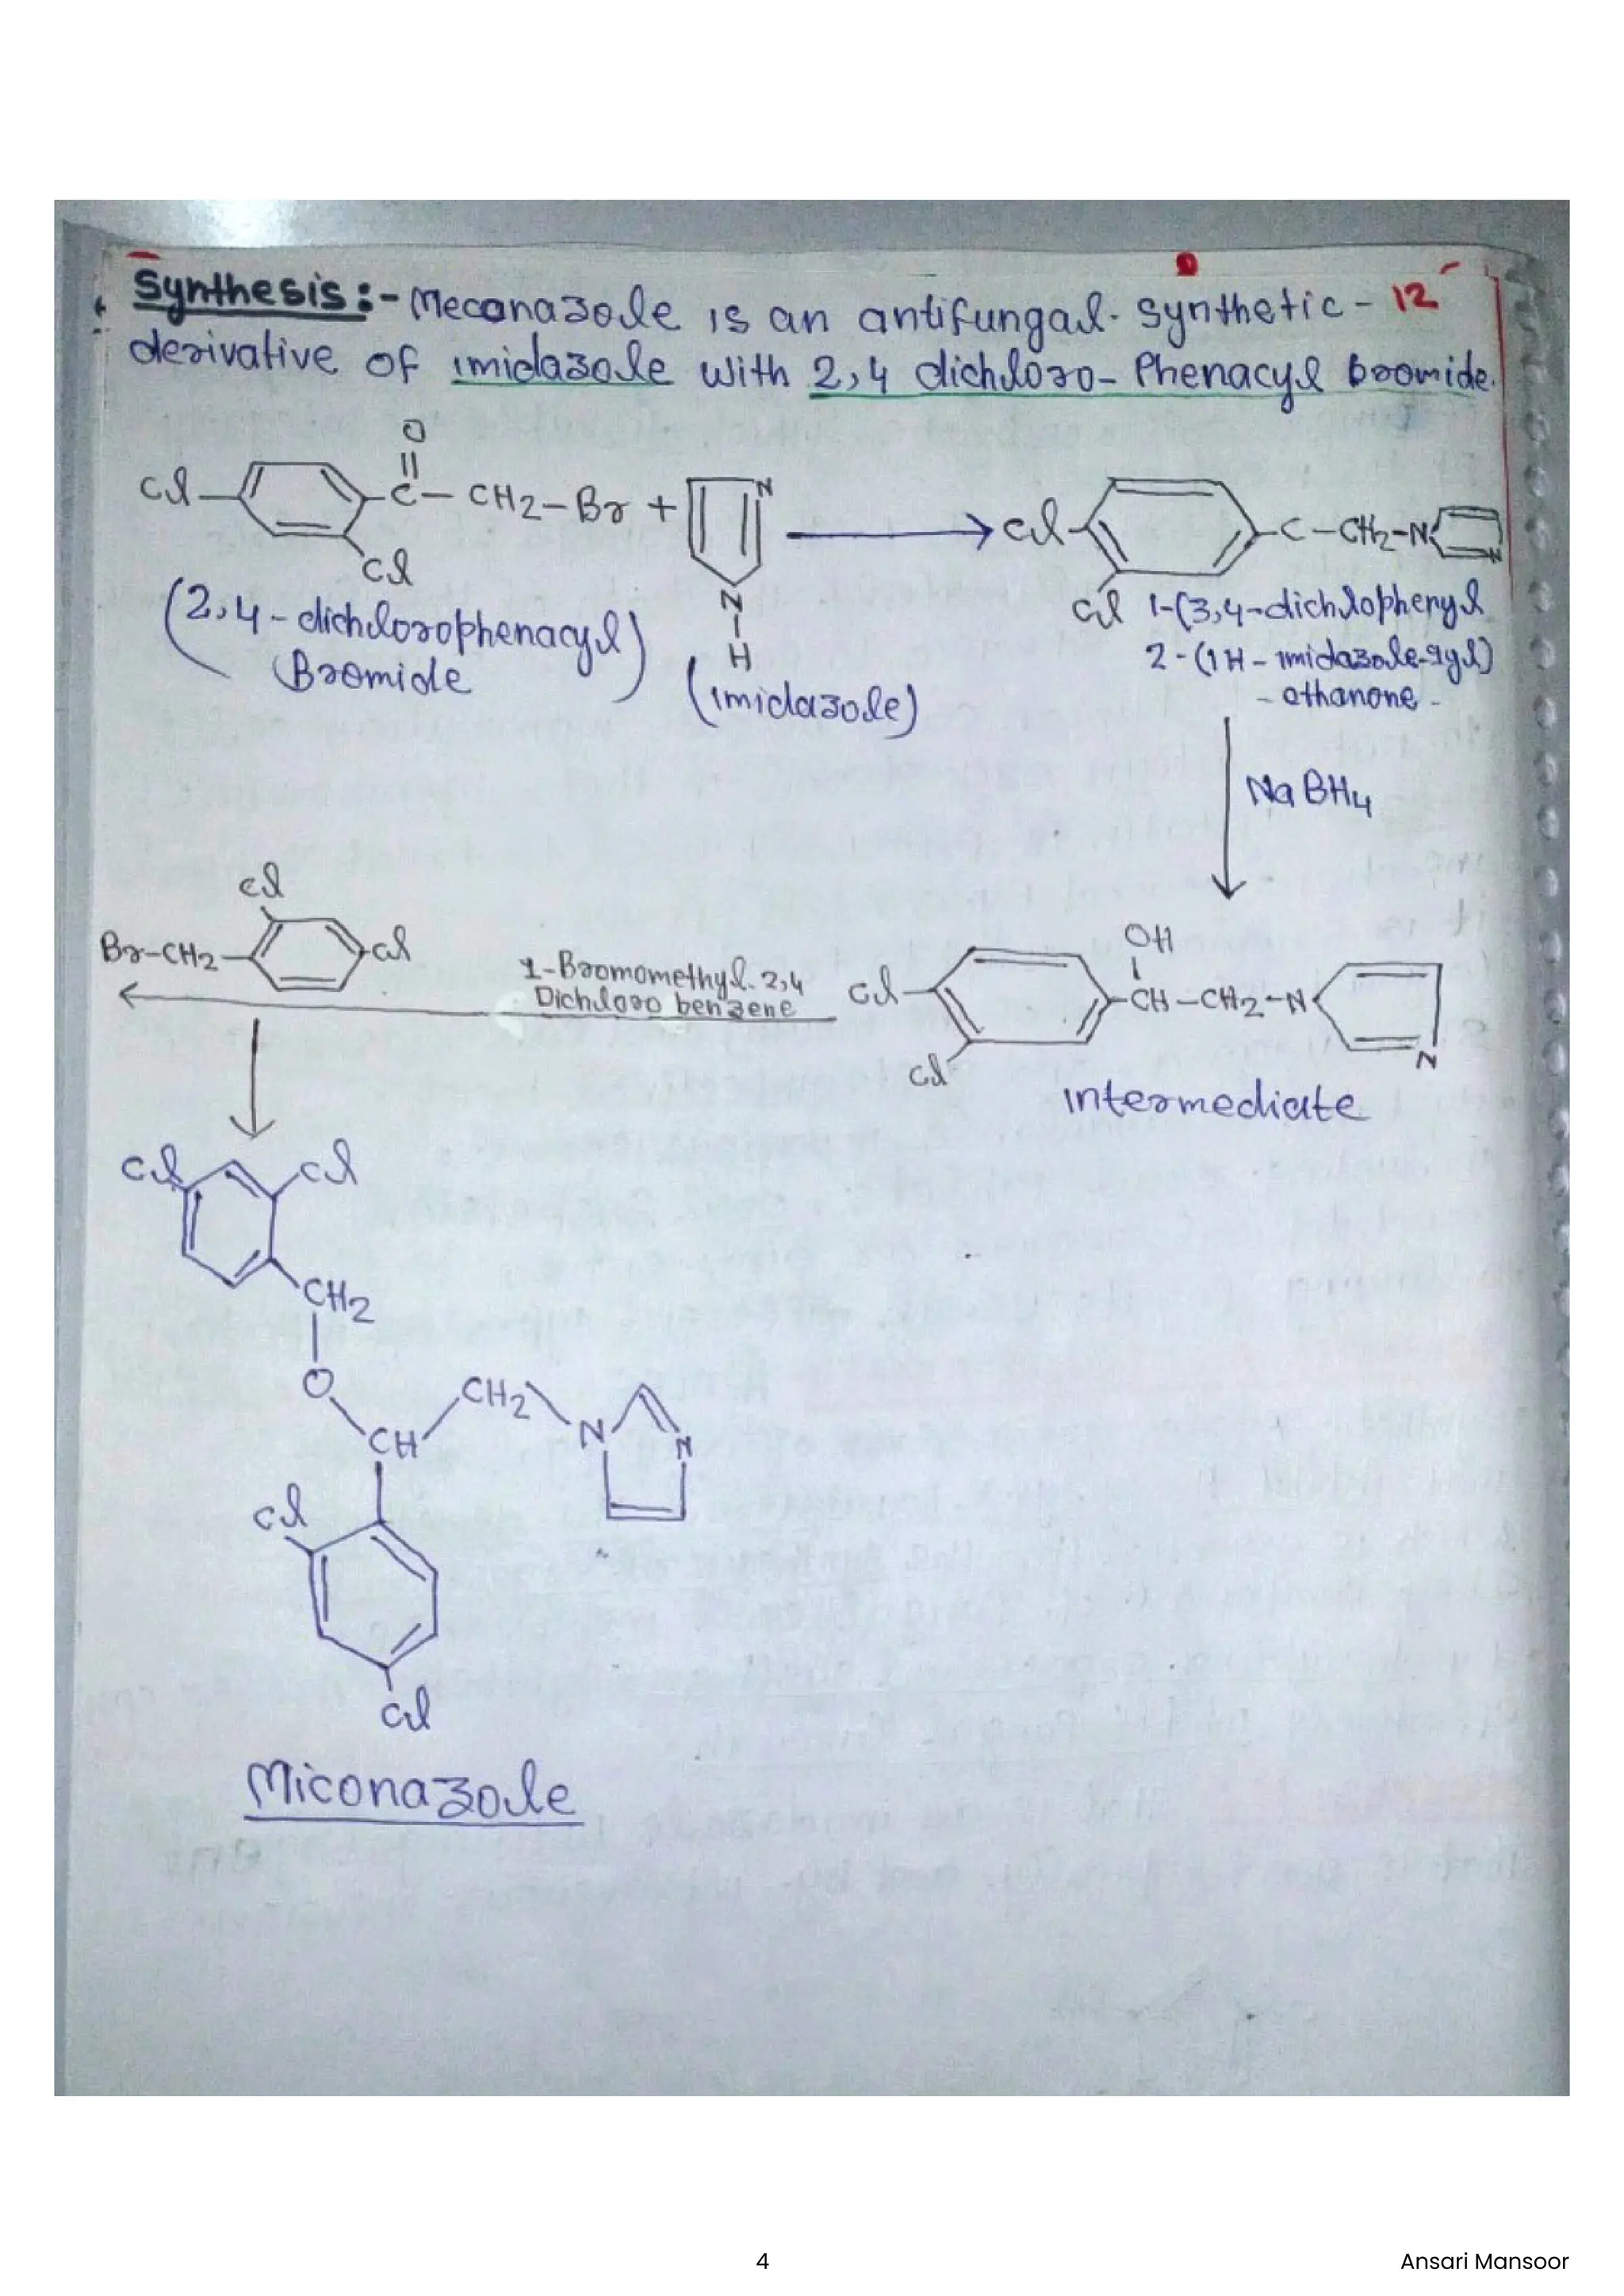 Synthesis :- Meconazole is an antifungal synthetic - 12
derivative of imidazole with 2,4 dichloro- Phenacyl bromide.
O
Cl C - CH2-Br + N Cl C-CH2-N N
Cl
N
H
Cl
(2,4-dichlorophenacyl)
Bromide
(imidazole)
1-(3,4-dichlophenyl
2-(1H-imidazole-
- ethanone -
NaBH4
Cl
Br-CH2 Cl
1-Bromomethyl 2,4
Dichloro benzene
OH
Cl CH-CH2-N
Cl N
intermediate
Cl Cl
CH2
O
CH2
CH N N
Cl
Cl
Miconazole
4
Ansari Mansoor